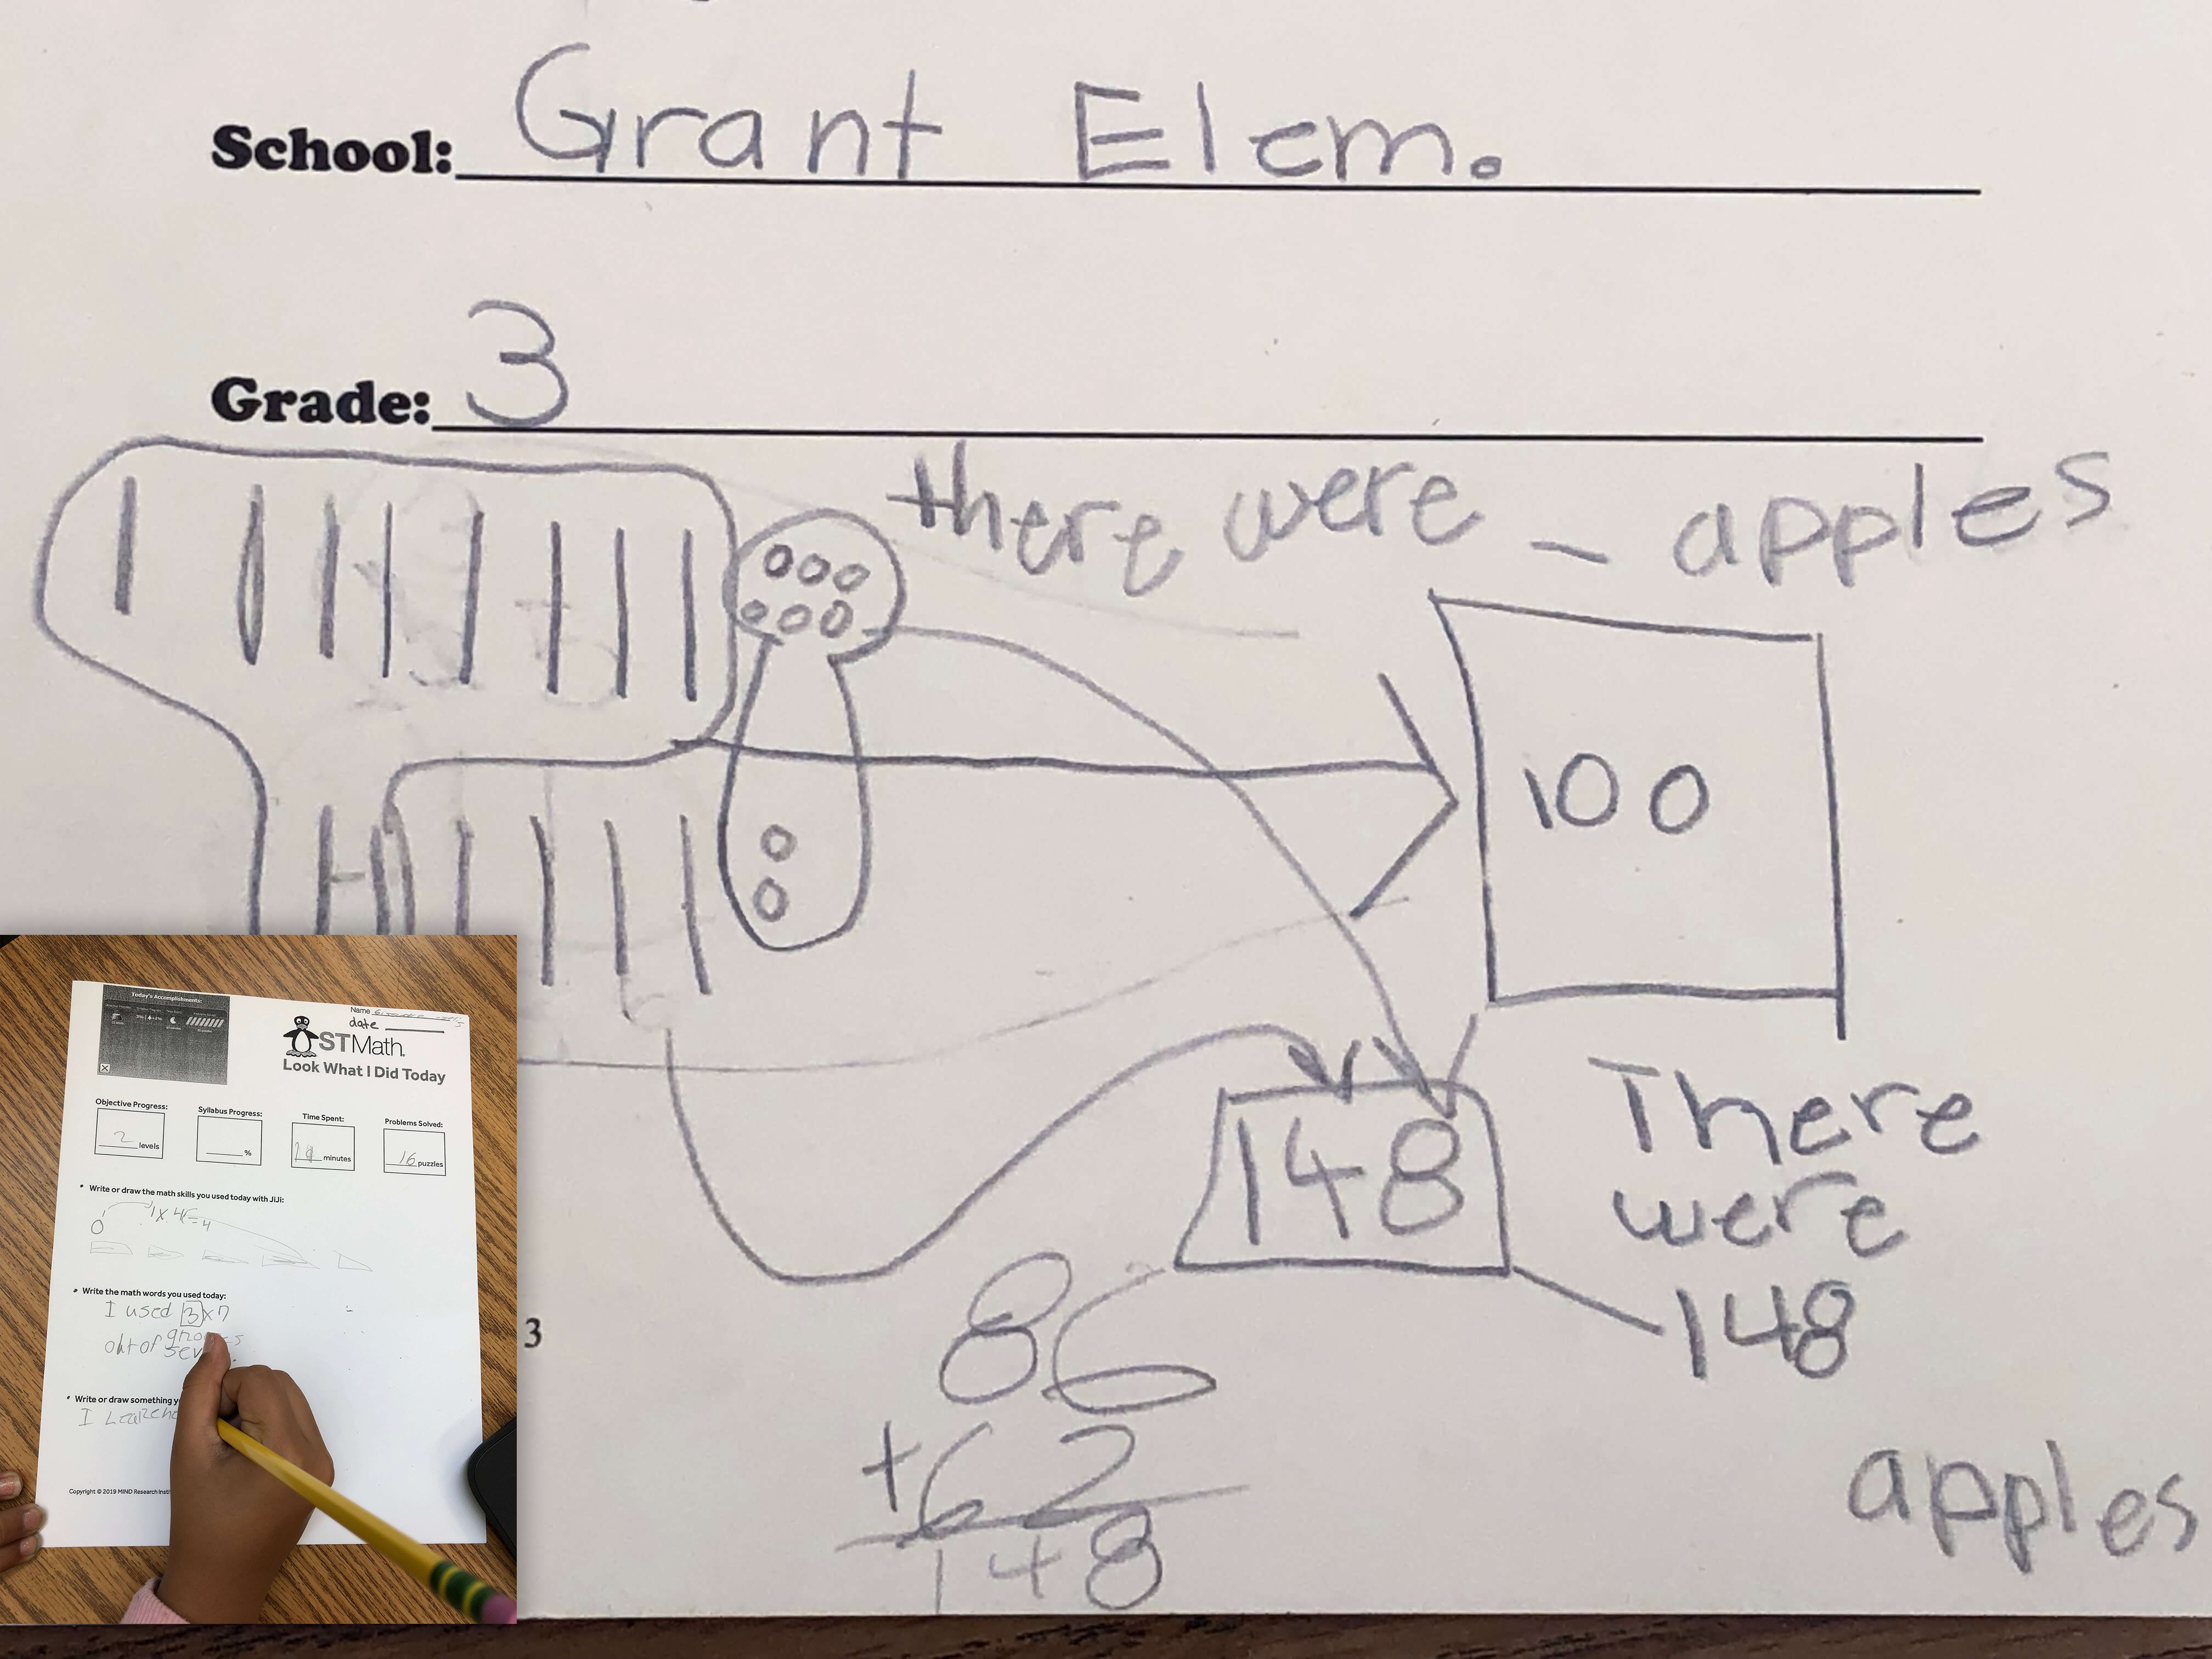 School: Grant Elem.
Grade: 3
there were _ apples
100
148
There
were
148
apples
86
+62
148
3
Today's Accomplishments:
Name
date
STMath.
Look What I Did Today
Objective Progress:
2 levels
Syllabus Progress:
%
Time Spent:
minutes
Problems Solved:
16 puzzles
Write or draw the math skills you used today with JiJi:
0
1x4=4
Write the math words you used today:
I used 3x7
out of
Write or draw something
I
Copyright © 2019 MIND Research